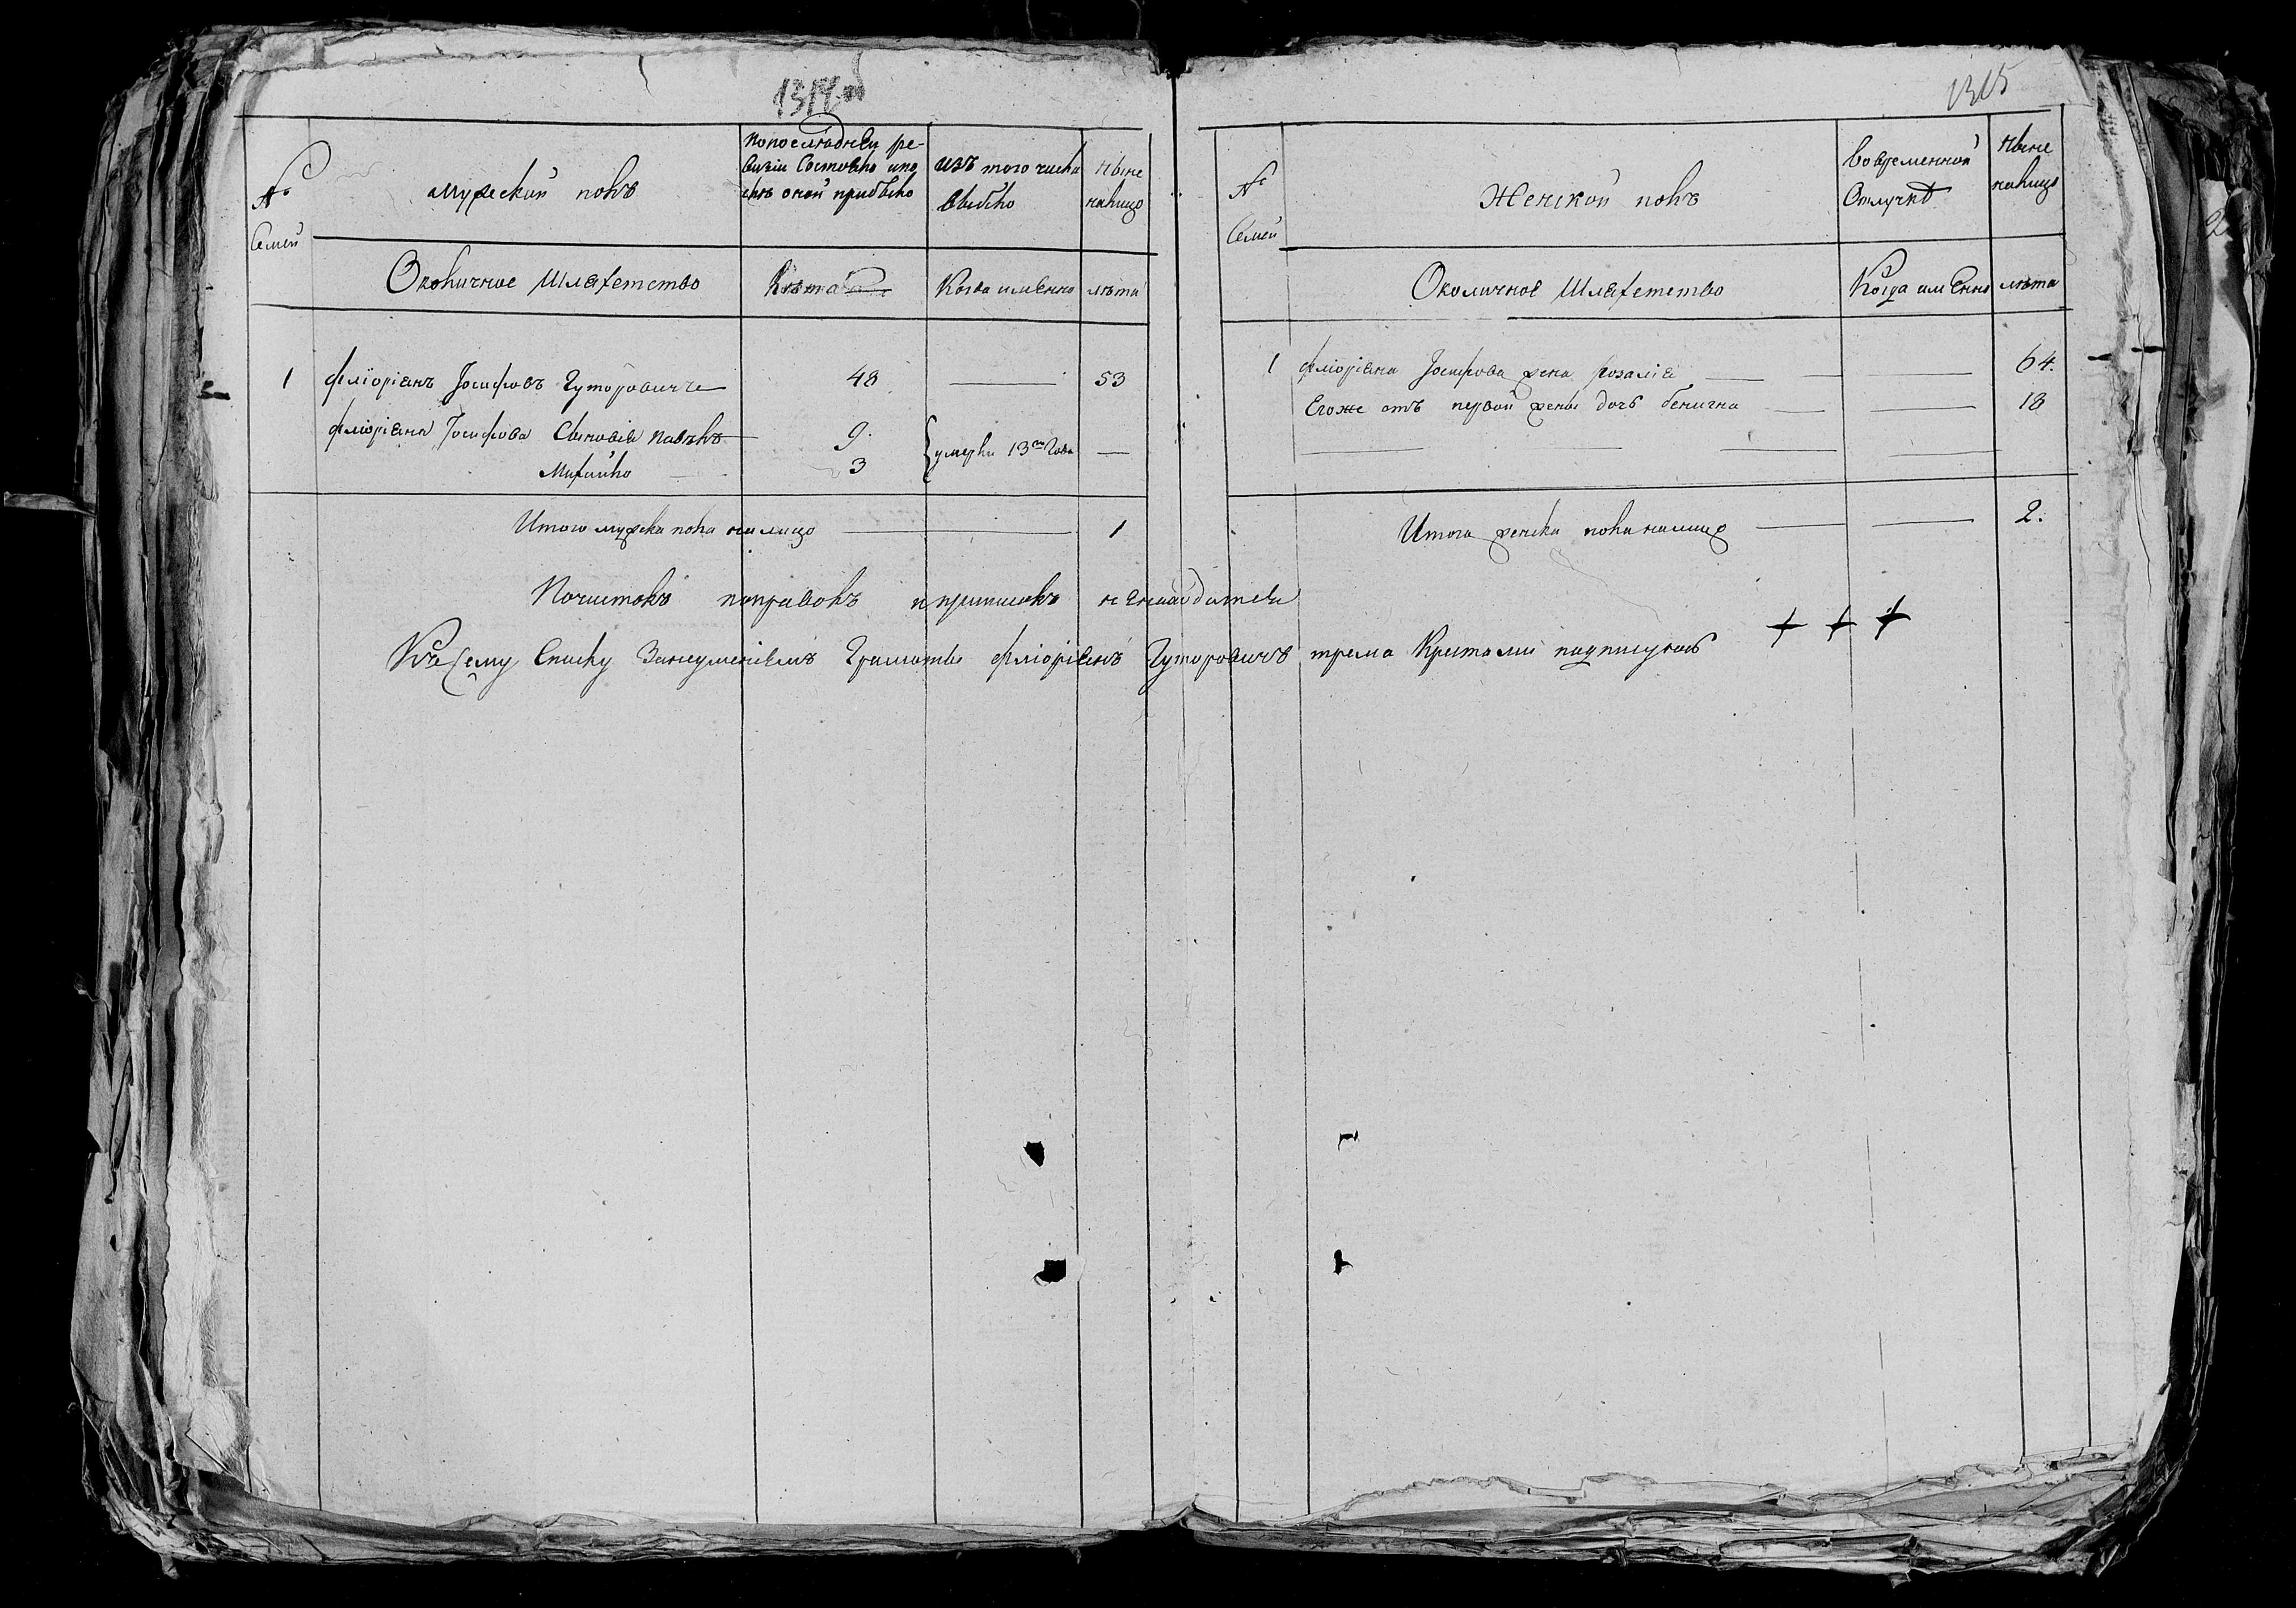 1314 об
№
Семей
мужеской полъ
по последней ре-
визіи Состояло ипо
слѣ оной прибыло
изъ того числа
выбыло
Ныне
налицо
Околичное Шляхетство
Лѣта
Когда именно
лѣта
1 фліоріянъ Іосифовъ Гуторовичъ 48 — 53
фліоріяна Іосифова Сыновія Павелъ 9. умерли 13го Года —
Михайло 3
Итого мужска пола налицо — 1
1315
№
Семей
Женской полъ
вовременной
Отлучкѣ
Ныне
налицо
Околичное Шляхетство
Когда имЕнно
лѣта
1 фліоріяна Іосифова жена розалія — — 64.
Егоже отъ первой жены дочъ бенигна — — 18
Итого женска пола налицо — — 2.
Почистокъ поправокъ иприписокъ ненаходится
Ксему Списку Занеуменіемъ Грамоты фліоріянъ Гуторовичъ трема Крестами подписуюсъ + + +